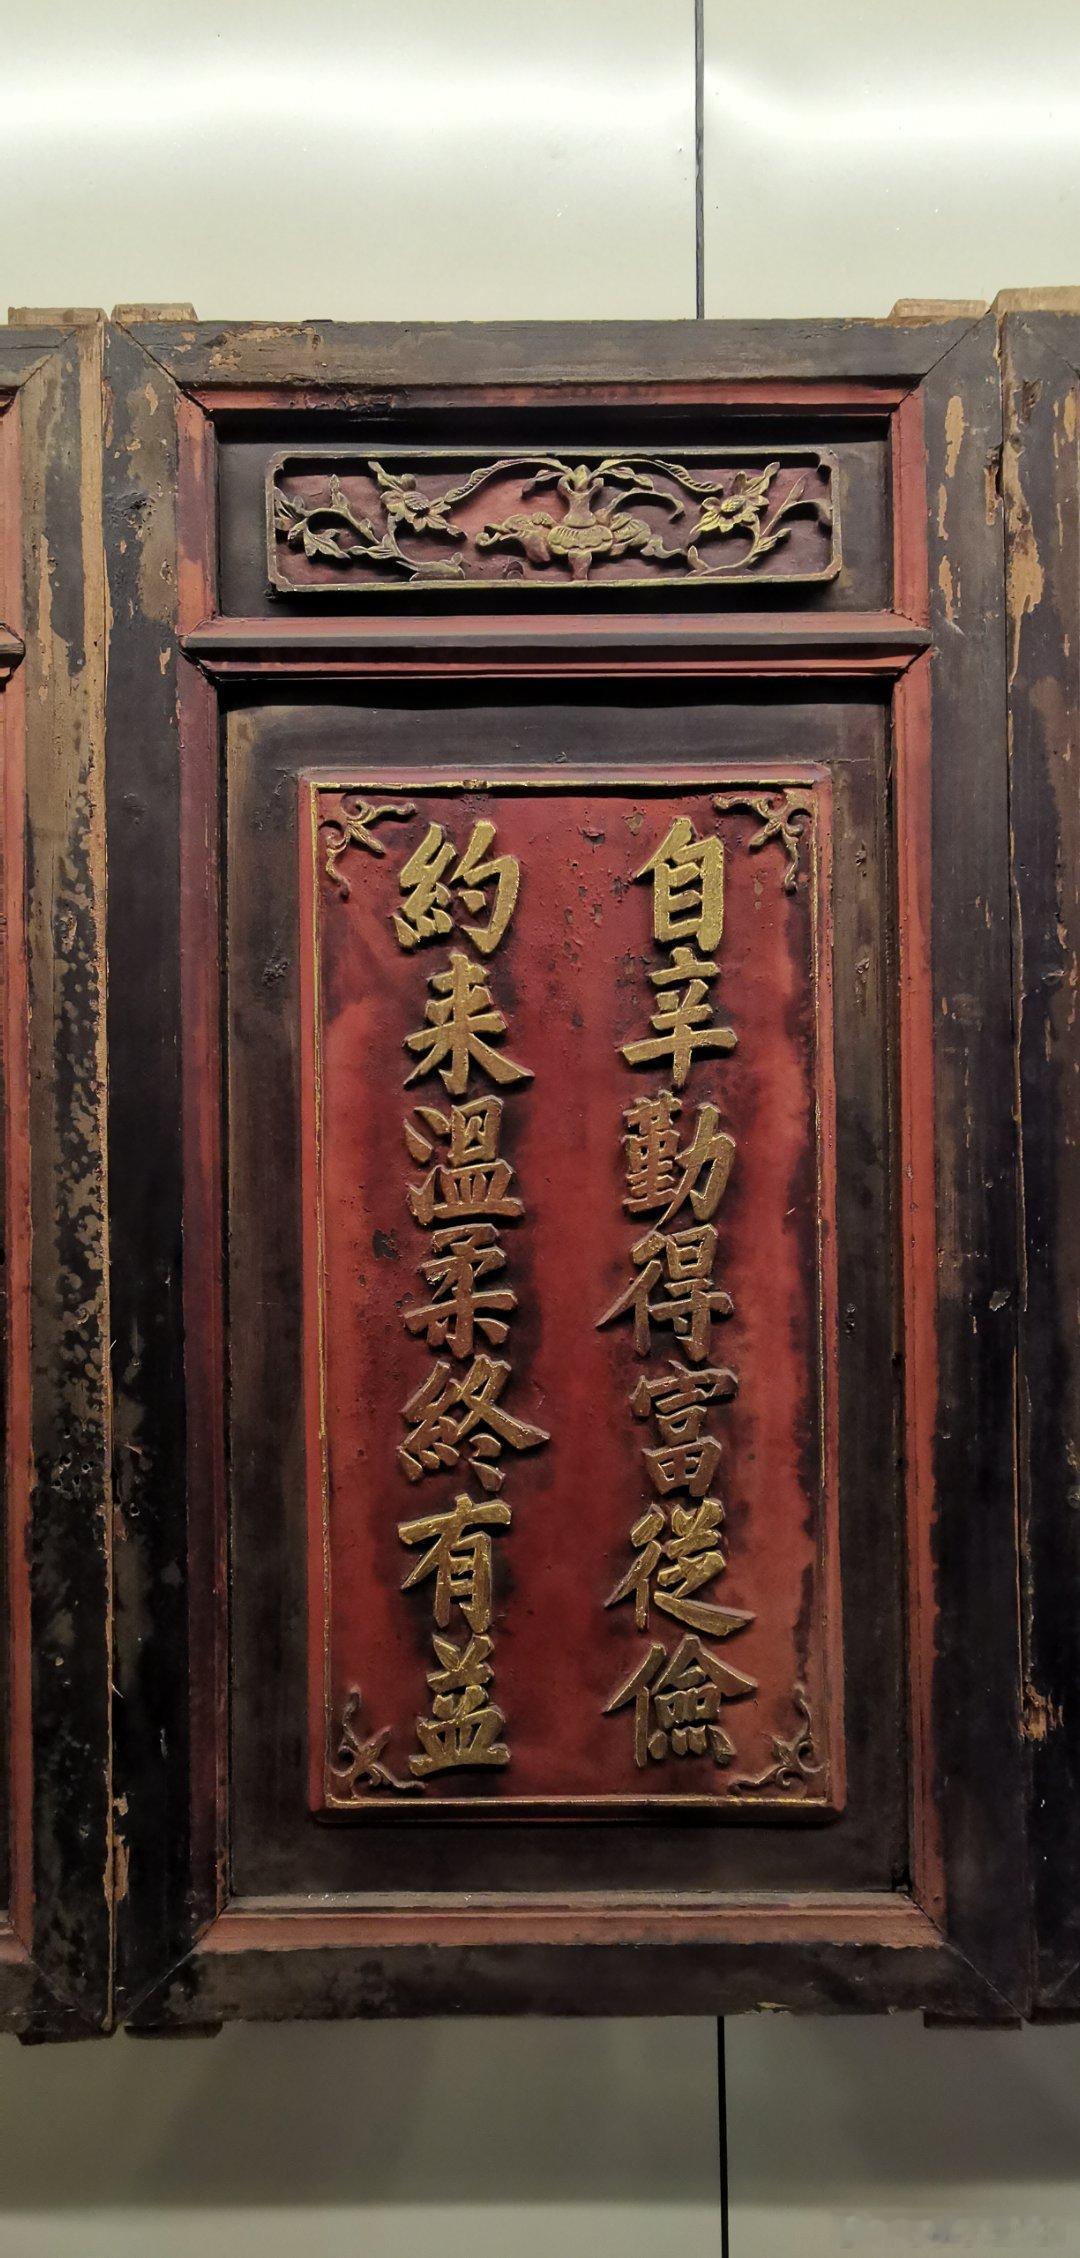 自辛勤得富從儉
約来溫柔終有益